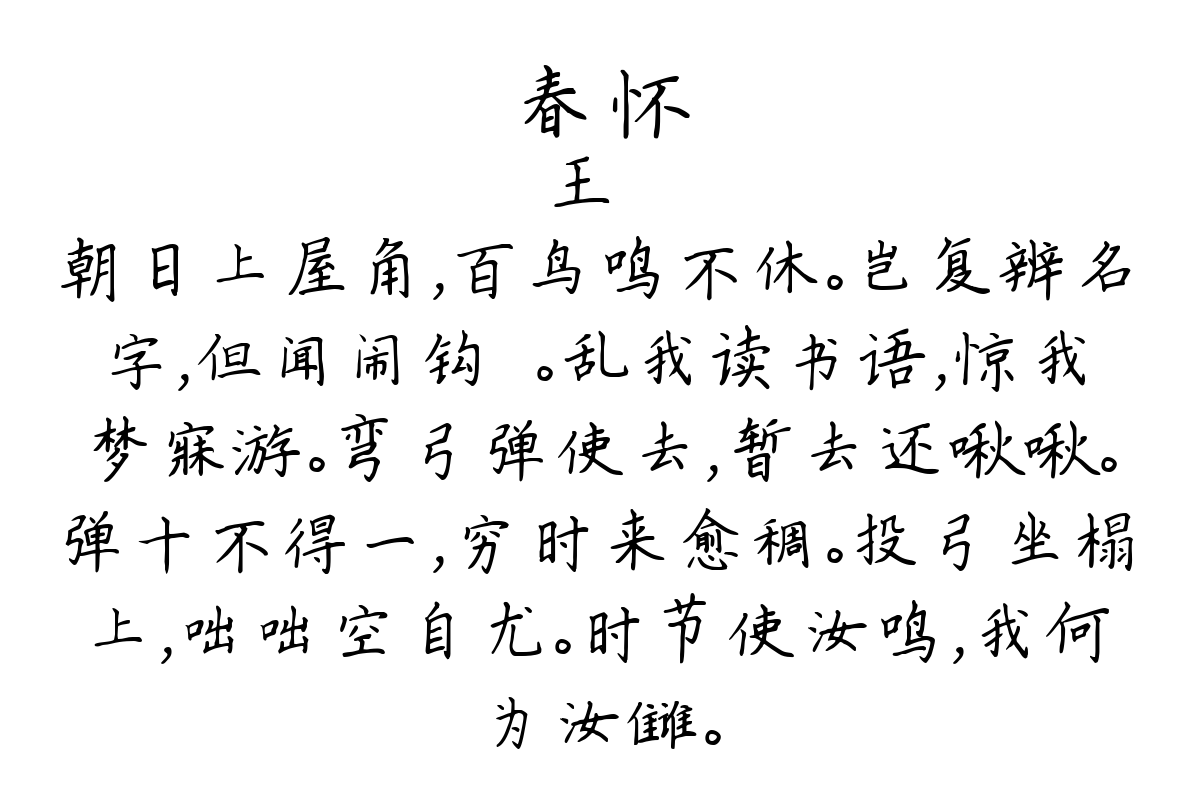 春怀
王
朝日上屋角,百鸟鸣不休。岂复辨名
字,但闻闹钩 。乱我读书语,惊我
梦寐游。弯弓弹使去,暂去还啾啾。
弹十不得一,穷时来愈稠。投弓坐榻
上,咄咄空自尤。时节使汝鸣,我何
为汝雠。